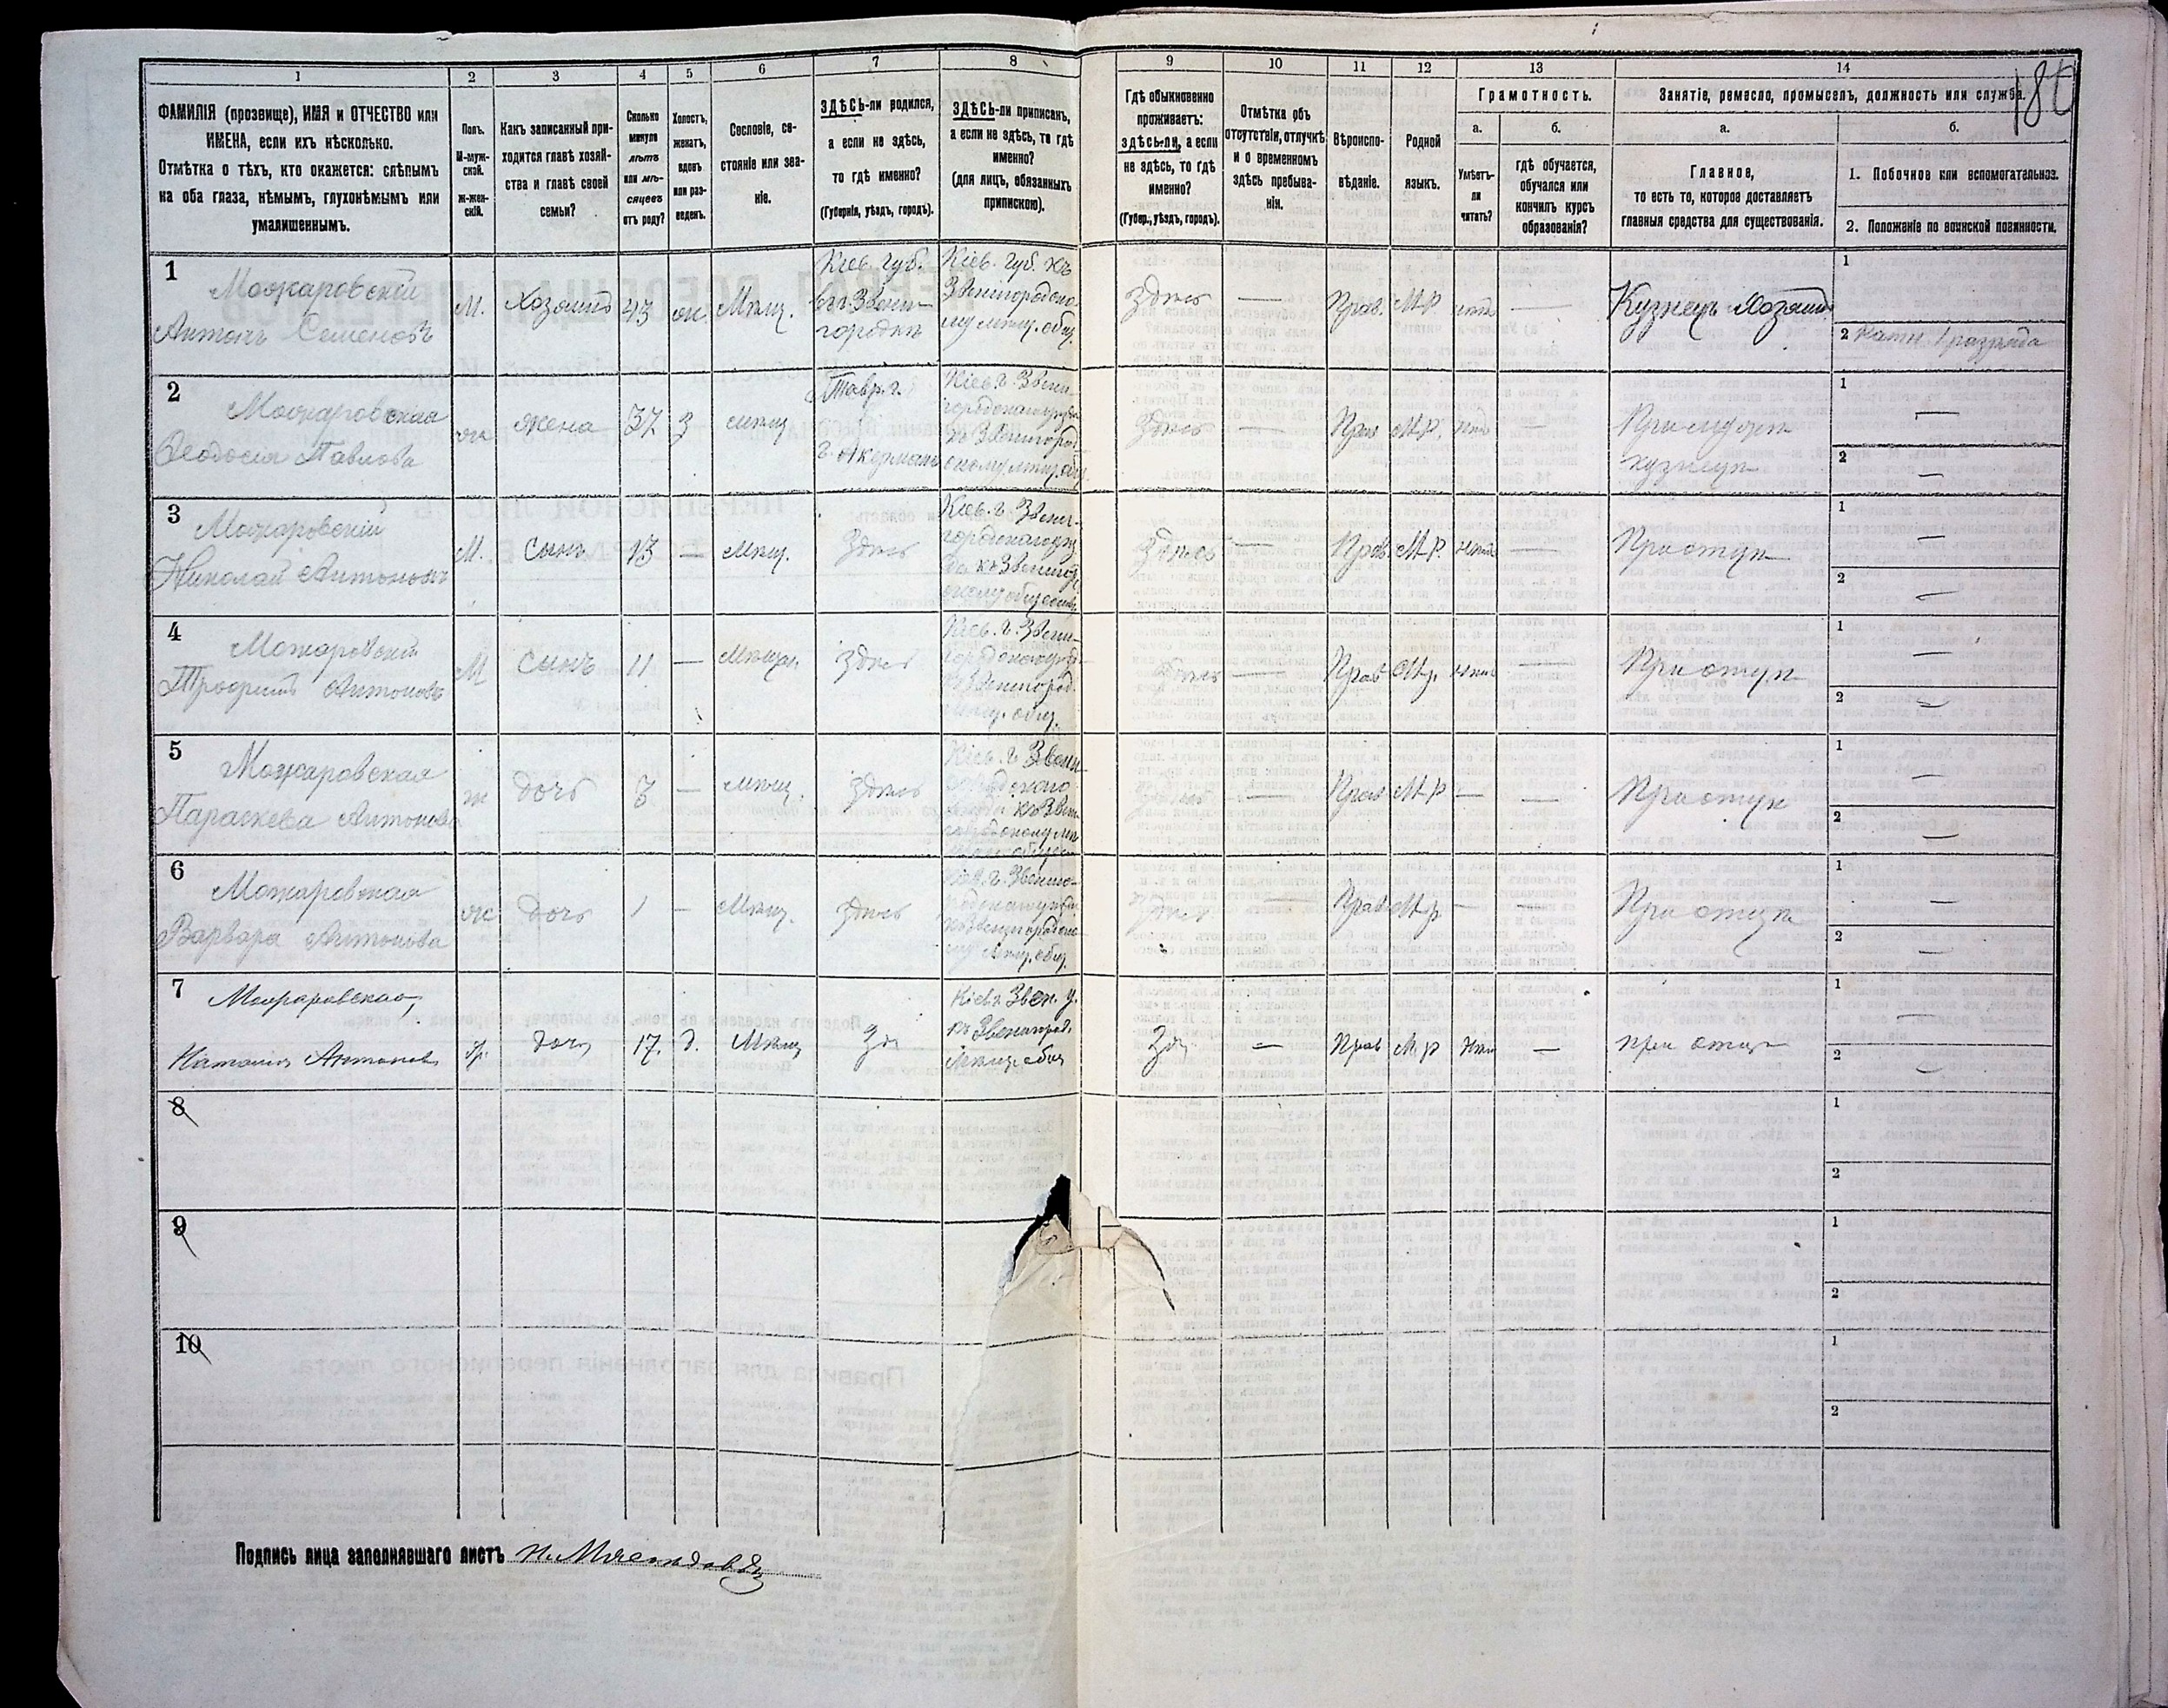 1 2 3 4 5 6 7 8 9 10 11 12 13 14
180
ФАМИЛІЯ (прозвище), ИМЯ и ОТЧЕСТВО или
ИМЕНА, если ихъ нѣсколько.
Отмѣтка о тѣхъ, кто окажется: слѣпымъ
на оба глаза, нѣмымъ, глухонѣмымъ или
умалишеннымъ.
Полъ.
М-муж-
ской.
Ж-жен-
скій.
Какъ записанный при-
ходится главѣ хозяй-
ства и главѣ своей
семьи?
Сколько
минуло
лѣтъ
или мѣ-
сяцевъ
отъ роду?
Холостъ,
женатъ,
вдовъ
или раз-
веденъ.
Сословіе, со-
стояніе или зва-
ніе.
ЗДѢСЬ-ли родился,
а если не здѣсь,
то гдѣ именно?
(Губернія, уѣздъ, городъ).
ЗДѢСЬ-ли приписанъ,
а если не здѣсь, то гдѣ
именно?
(для лицъ, обязанныхъ
припискою).
Гдѣ обыкновенно
проживаетъ:
здѣсь-ли, а если
не здѣсь, то гдѣ
именно?
(Губер., уѣздъ, городъ).
Отмѣтка объ
отсутствіи, отлучкѣ
и о временномъ
здѣсь пребыва-
ніи.
Вѣроиспо-
вѣданіе.
Родной
языкъ.
Грамотность.
а.
Умѣетъ-
ли
читать?
б.
гдѣ обучается,
обучался или
кончилъ курсъ
образованія?
Занятіе, ремесло, промыселъ, должность или служба.
а.
Главное,
то есть то, которое доставляетъ
главныя средства для существованія.
б.
1. Побочное или вспомогательное.
2. Положеніе по воинской повинности.
1 Можаровскій
Антонъ Семеновъ
М. Хозяинъ 43 ж. Мѣщ.
Кіев. губ.
въ Звени-
городкѣ
Кіев. губ. къ
Звенигородско-
му мѣщ. общ.
здѣсь — Прав. М-Р нѣтъ —
Кузнецъ хозяинъ
1
2 Ратн. 1 разряда
2 Можаровская
Феодосія Павлова
ж жена 37 З мѣщ
Тавр. г.
г. Акерманъ
Кіев. г. Звени-
здѣсь — Прав М-Р. нѣтъ —
При мужѣ
кузнецѣ
1 —
2 —
3 Можаровскій
Николай Антоновъ
М. сынъ 13 — Мѣщ. здѣсь
Кіев. г. Звени-
здѣсь — Прав М-Р. нѣтъ —
При отцѣ
1 —
2 —
4 Можаровскій
Трофимъ Антоновъ
М сынъ 11 — Мѣщан. здѣсь
Кіев. г. Звени-
здѣсь — Прав М-р. нѣтъ —
При отцѣ
1 —
2 —
5 Можаровская
Параскева Антонова
ж дочь 3 — мѣщ. здѣсь
Кіев. г. Звени-
здѣсь — Прав М-Р — —
При отцѣ
1 —
2 —
6 Можаровская
Варвара Антонова
ж дочь 1 — Мѣщ. здѣсь
Кіев. г. Звениго-
му мѣщ. общ.
здѣсь — Прав М-р — —
При отцѣ
1 —
2 —
7 Можаровская
Наталія Антонов
дочь 17. д. Мѣщ Зд
Кіев г Звен. у.
къ Звенигород.
Мѣщ. общ
Зд — Прав М. р нѣт —
при отцѣ
1 —
2 —
8
1
2
9
1
2
10
1
2
Подпись лица заполнявшаго листъ